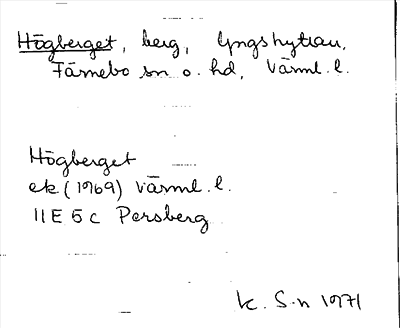 Högberget, berg, Yngshyttan,
Färnebo sn o. hd, Värml. l.
Högberget
ek (1969) Värml. l.
11E 5c Persberg
k. S-n 1971